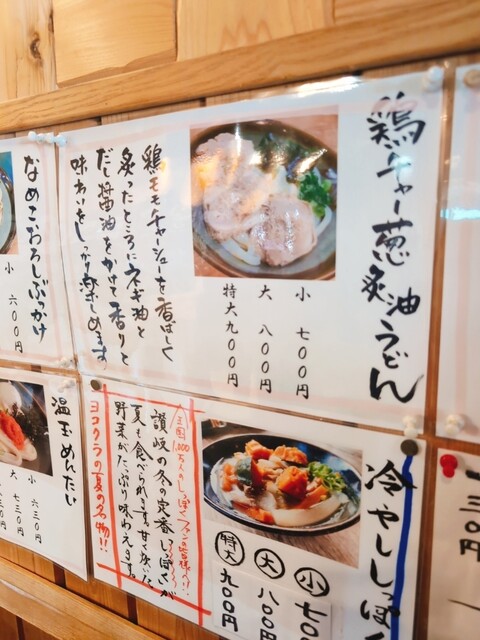 鶏チャー葱炙油うどん
小 七〇〇円
大 八〇〇円
特大九〇〇円
鶏モモチャーシューを香ばしく
炙ったところにネギ油と
だし醤油をかけて香りと
味わいをしっかり楽しめます
なめこおろしぶっかけ
小 六〇〇円
冷やししっぽく
小 七〇〇
大 八〇〇円
特大 九〇〇円
讃岐の冬の定番しっぽくが
夏も食べられます。甘く炊いた
野菜がたっぷり味わえます。
ヨコクラの夏の名物!!
温玉めんたい
小 六三〇円
大 七三〇円
八三〇円
一
三〇円